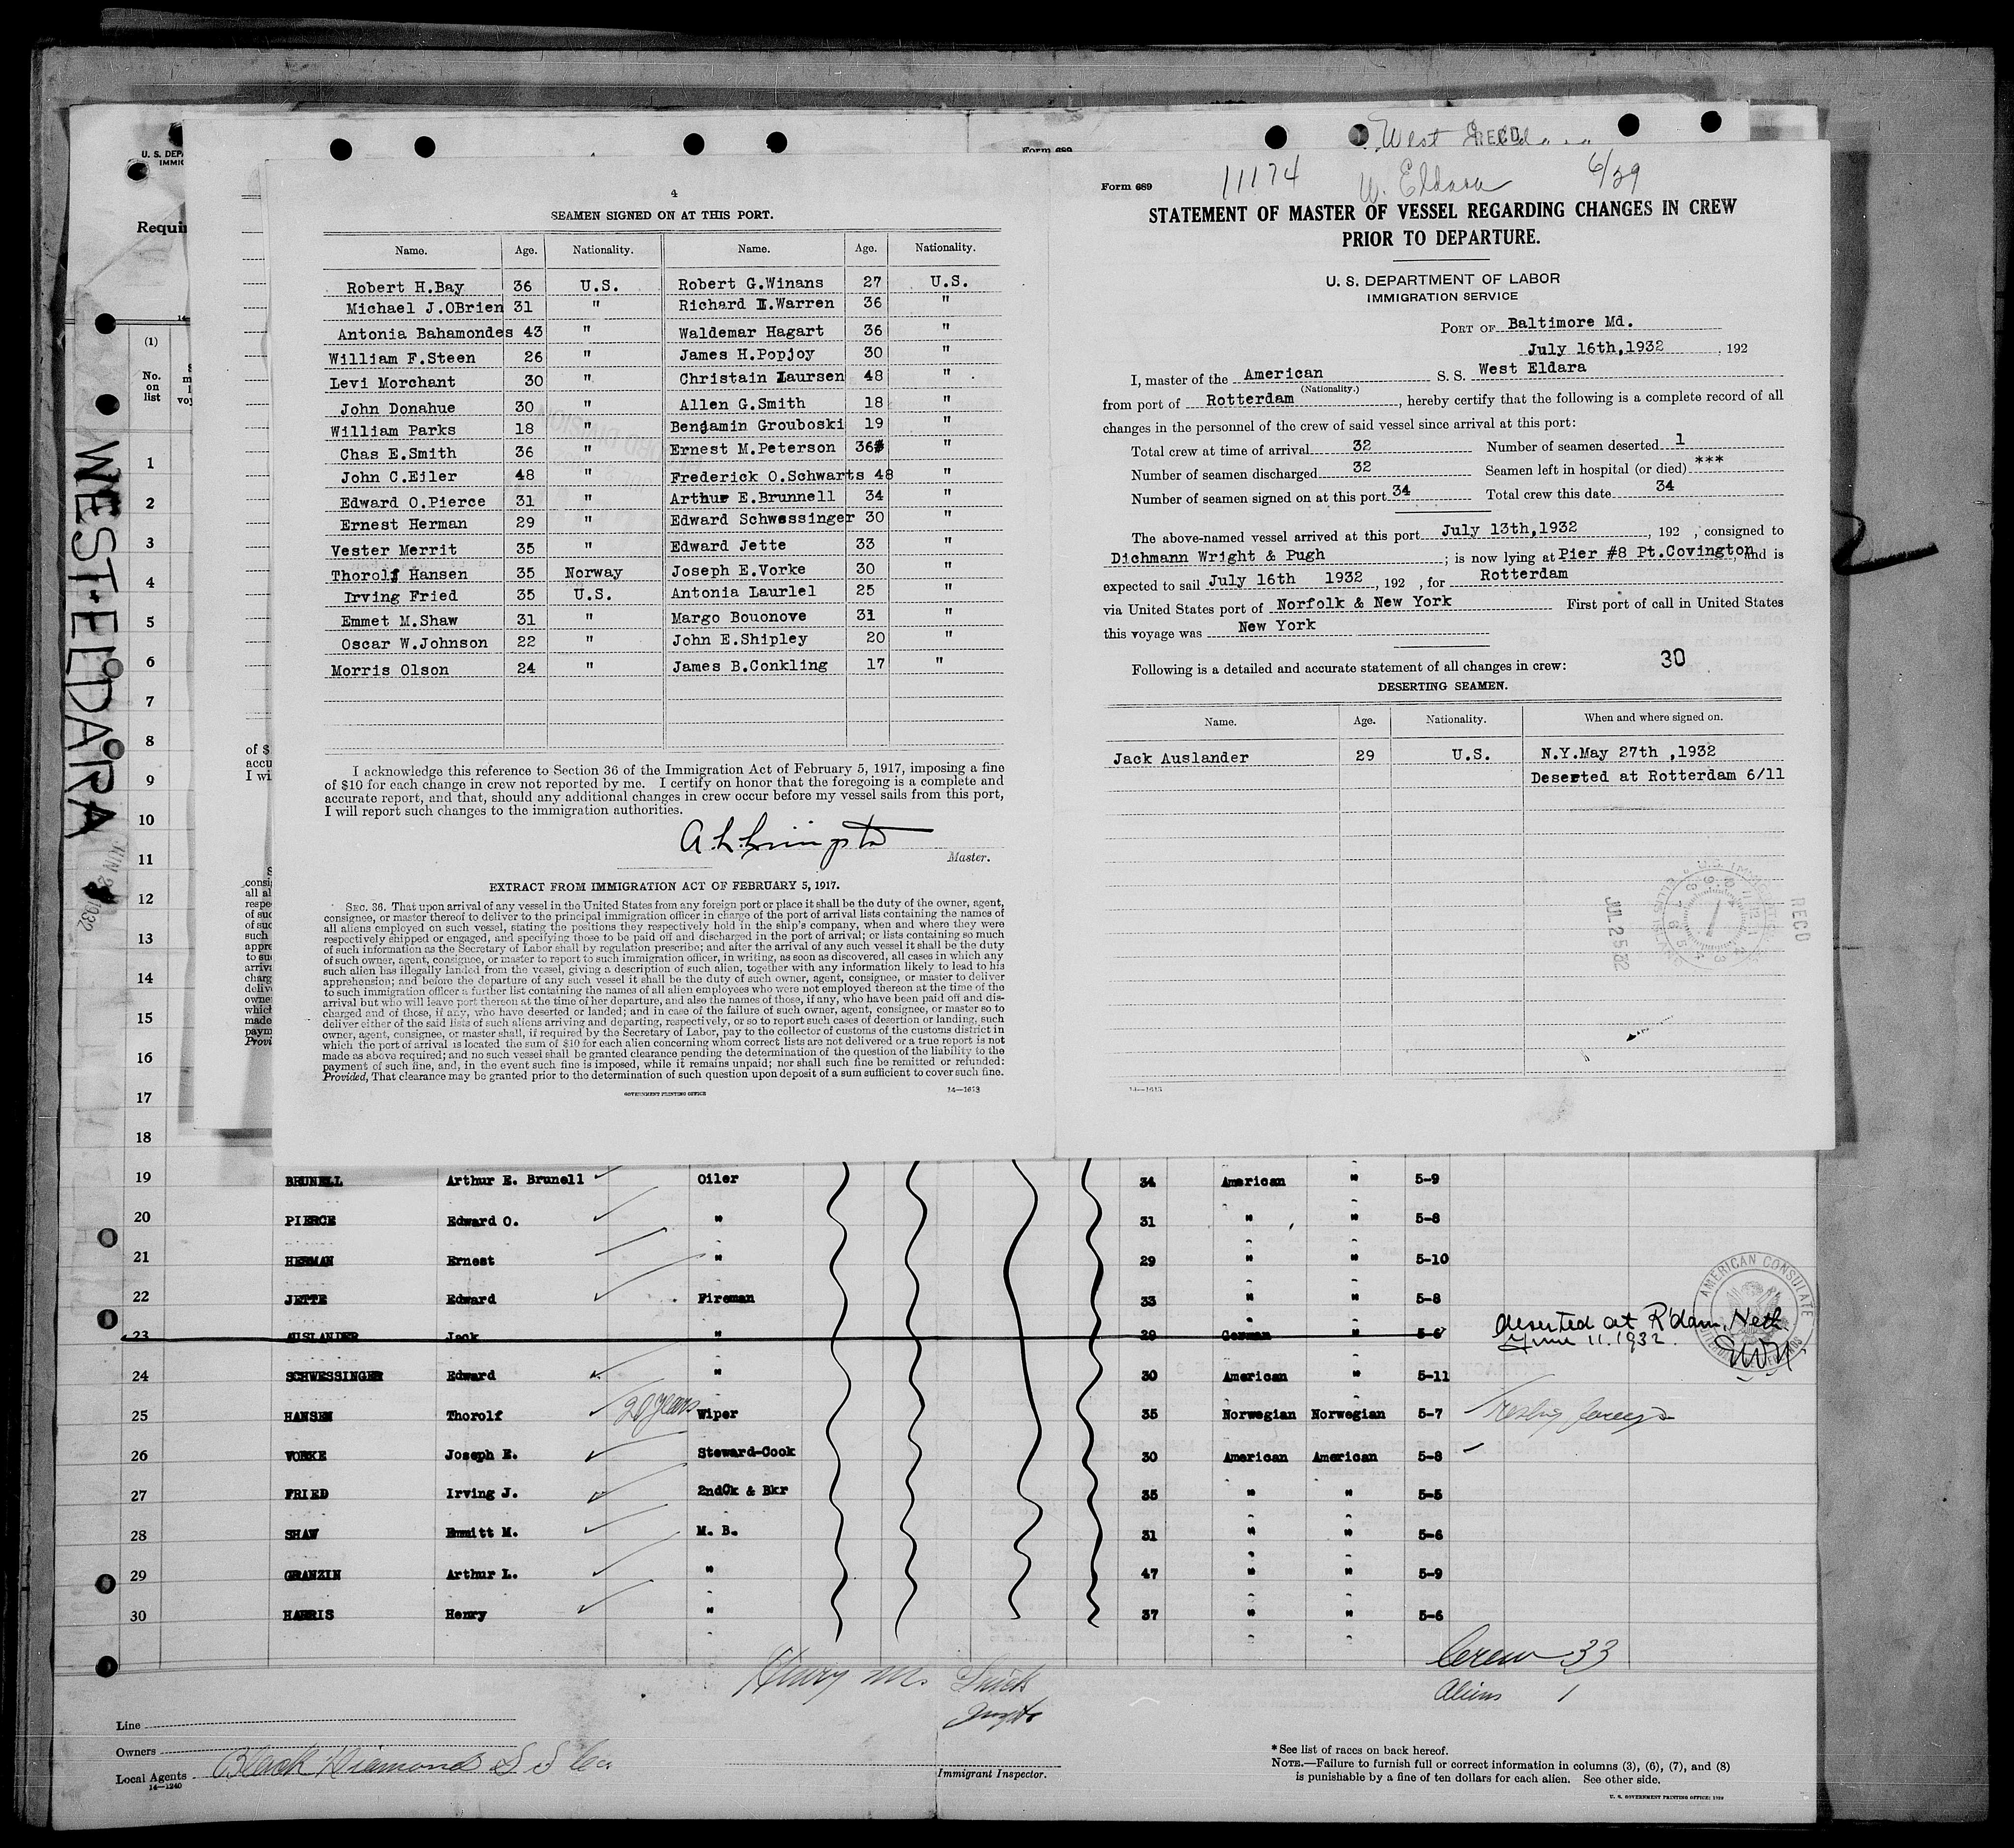 West Eldara
RECD
Form 689
U. S. DEPA
IMMIG
Requir
4
SEAMEN SIGNED ON AT THIS PORT.
Name. Age. Nationality. Name. Age. Nationality.
Robert H.Bay 36 U.S. Robert G.Winans 27 U.S.
Michael J.OBrien 31 " Richard I.Warren 36 "
Antonia Bahamondes 43 " Waldemar Hagart 36 "
William F.Steen 26 " James H.Popjoy 30 "
Levi Morchant 30 " Christain Laursen 48 "
John Donahue 30 " Allen G.Smith 18 "
William Parks 18 " Benjamin Grouboski 19 "
Chas E.Smith 36 " Ernest M.Peterson 36 "
John C.Eiler 48 " Frederick O.Schwarts 48 "
Edward O.Pierce 31 " Arthur E.Brunnell 34 "
Ernest Herman 29 " Edward Schwessinger 30 "
Vester Merrit 35 " Edward Jette 33 "
Thorolf Hansen 35 Norway Joseph E.Vorke 30 "
Irving Fried 35 U.S. Antonia Laurlel 25 "
Emmet M.Shaw 31 " Margo Bouonove 31 "
Oscar W.Johnson 22 " John E.Shipley 20 "
Morris Olson 24 " James B.Conkling 17 "
I acknowledge this reference to Section 36 of the Immigration Act of February 5, 1917, imposing a fine
of $10 for each change in crew not reported by me. I certify on honor that the foregoing is a complete and
accurate report, and that, should any additional changes in crew occur before my vessel sails from this port,
I will report such changes to the immigration authorities.
Master.
EXTRACT FROM IMMIGRATION ACT OF FEBRUARY 5, 1917.
SEC. 36. That upon arrival of any vessel in the United States from any foreign port or place it shall be the duty of the owner, agent,
consignee, or master thereof to deliver to the principal immigration officer in charge of the port of arrival lists containing the names of
all aliens employed on such vessel, stating the positions they respectively hold in the ship's company, when and where they were
respectively shipped or engaged, and specifying those to be paid off and discharged in the port of arrival; or lists containing so much
of such information as the Secretary of Labor shall by regulation prescribe; and after the arrival of any such vessel it shall be the duty
of such owner, agent, consignee, or master to report to such immigration officer, in writing, as soon as discovered, all cases in which any
such alien has illegally landed from the vessel, giving a description of such alien, together with any information likely to lead to his
apprehension; and before the departure of any such vessel it shall be the duty of such owner, agent, consignee, or master to deliver
to such immigration officer a further list containing the names of all alien employees who were not employed thereon at the time of the
arrival but who will leave port thereon at the time of her departure, and also the names of those, if any, who have been paid off and dis-
charged and of those, if any, who have deserted or landed; and in case of the failure of such owner, agent, consignee, or master so to
deliver either of the said lists of such aliens arriving and departing, respectively, or so to report such cases of desertion or landing, such
owner, agent, consignee, or master shall, if required by the Secretary of Labor, pay to the collector of customs of the customs district in
which the port of arrival is located the sum of $10 for each alien concerning whom correct lists are not delivered or a true report is not
made as above required; and no such vessel shall be granted clearance pending the determination of the question of the liability to the
payment of such fine, and, in the event such fine is imposed, while it remains unpaid; nor shall such fine be remitted or refunded:
Provided, That clearance may be granted prior to the determination of such question upon deposit of a sum sufficient to cover such fine.
GOVERNMENT PRINTING OFFICE 14—1613
Form 689 11174 W. Eldara 6/29
STATEMENT OF MASTER OF VESSEL REGARDING CHANGES IN CREW
PRIOR TO DEPARTURE.
U. S. DEPARTMENT OF LABOR
IMMIGRATION SERVICE
PORT OF Baltimore Md.
July 16th,1932 , 192
I, master of the American S. S. West Eldara
(Nationality.)
from port of Rotterdam , hereby certify that the following is a complete record of all
changes in the personnel of the crew of said vessel since arrival at this port:
Total crew at time of arrival 32 Number of seamen deserted 1
Number of seamen discharged 32 Seamen left in hospital (or died) ***
Number of seamen signed on at this port 34 Total crew this date 34
The above-named vessel arrived at this port July 13th,1932 , 192 , consigned to
Dichmann Wright & Pugh ; is now lying at Pier #8 Pt.Covington, and is
expected to sail July 16th 1932 , 192 , for Rotterdam
via United States port of Norfolk & New York First port of call in United States
this voyage was New York
Following is a detailed and accurate statement of all changes in crew: 30
DESERTING SEAMEN.
Name. Age. Nationality. When and where signed on.
Jack Auslander 29 U.S. N.Y.May 27th ,1932
Deserted at Rotterdam 6/11
JUL 25 32
RECD
14—1613
WEST ELDARA
(1)
No.
on
list
1
2
3
4
5
6
7
8
9
10
11
12
13
14
15
16
17
18
19 BRUNELL Arthur E. Brunell Oiler 34 American " 5-9
20 PIERCE Edward O. " 31 " " 5-8
21 HERMAN Ernest " 29 " " 5-10
22 JETTE Edward Fireman 33 " " 5-8
23 AUSLANDER Jack " 29 German " 5-6 deserted at R'dam, Neth.
June 11.1932.
AMERICAN CONSULATE
24 SCHWESSINGER Edward " 30 American " 5-11
25 HANSEN Thorolf 20 years Wiper 35 Norwegian Norwegian 5-7
26 VORKE Joseph E. Steward-Cook 30 American American 5-8
27 FRIED Irving J. 2ndCk & Bkr 35 " " 5-5
28 SHAW Emmitt M. M. B. 31 " " 5-6
29 GRANZIN Arthur L. " 47 " " 5-9
30 HARRIS Henry " 37 " " 5-6
Crew 33
Aliens 1
Line
Owners
Local Agents Black Diamond S S Co.
14—1240
Immigrant Inspector.
*See list of races on back hereof.
NOTE.—Failure to furnish full or correct information in columns (3), (6), (7), and (8)
is punishable by a fine of ten dollars for each alien. See other side.